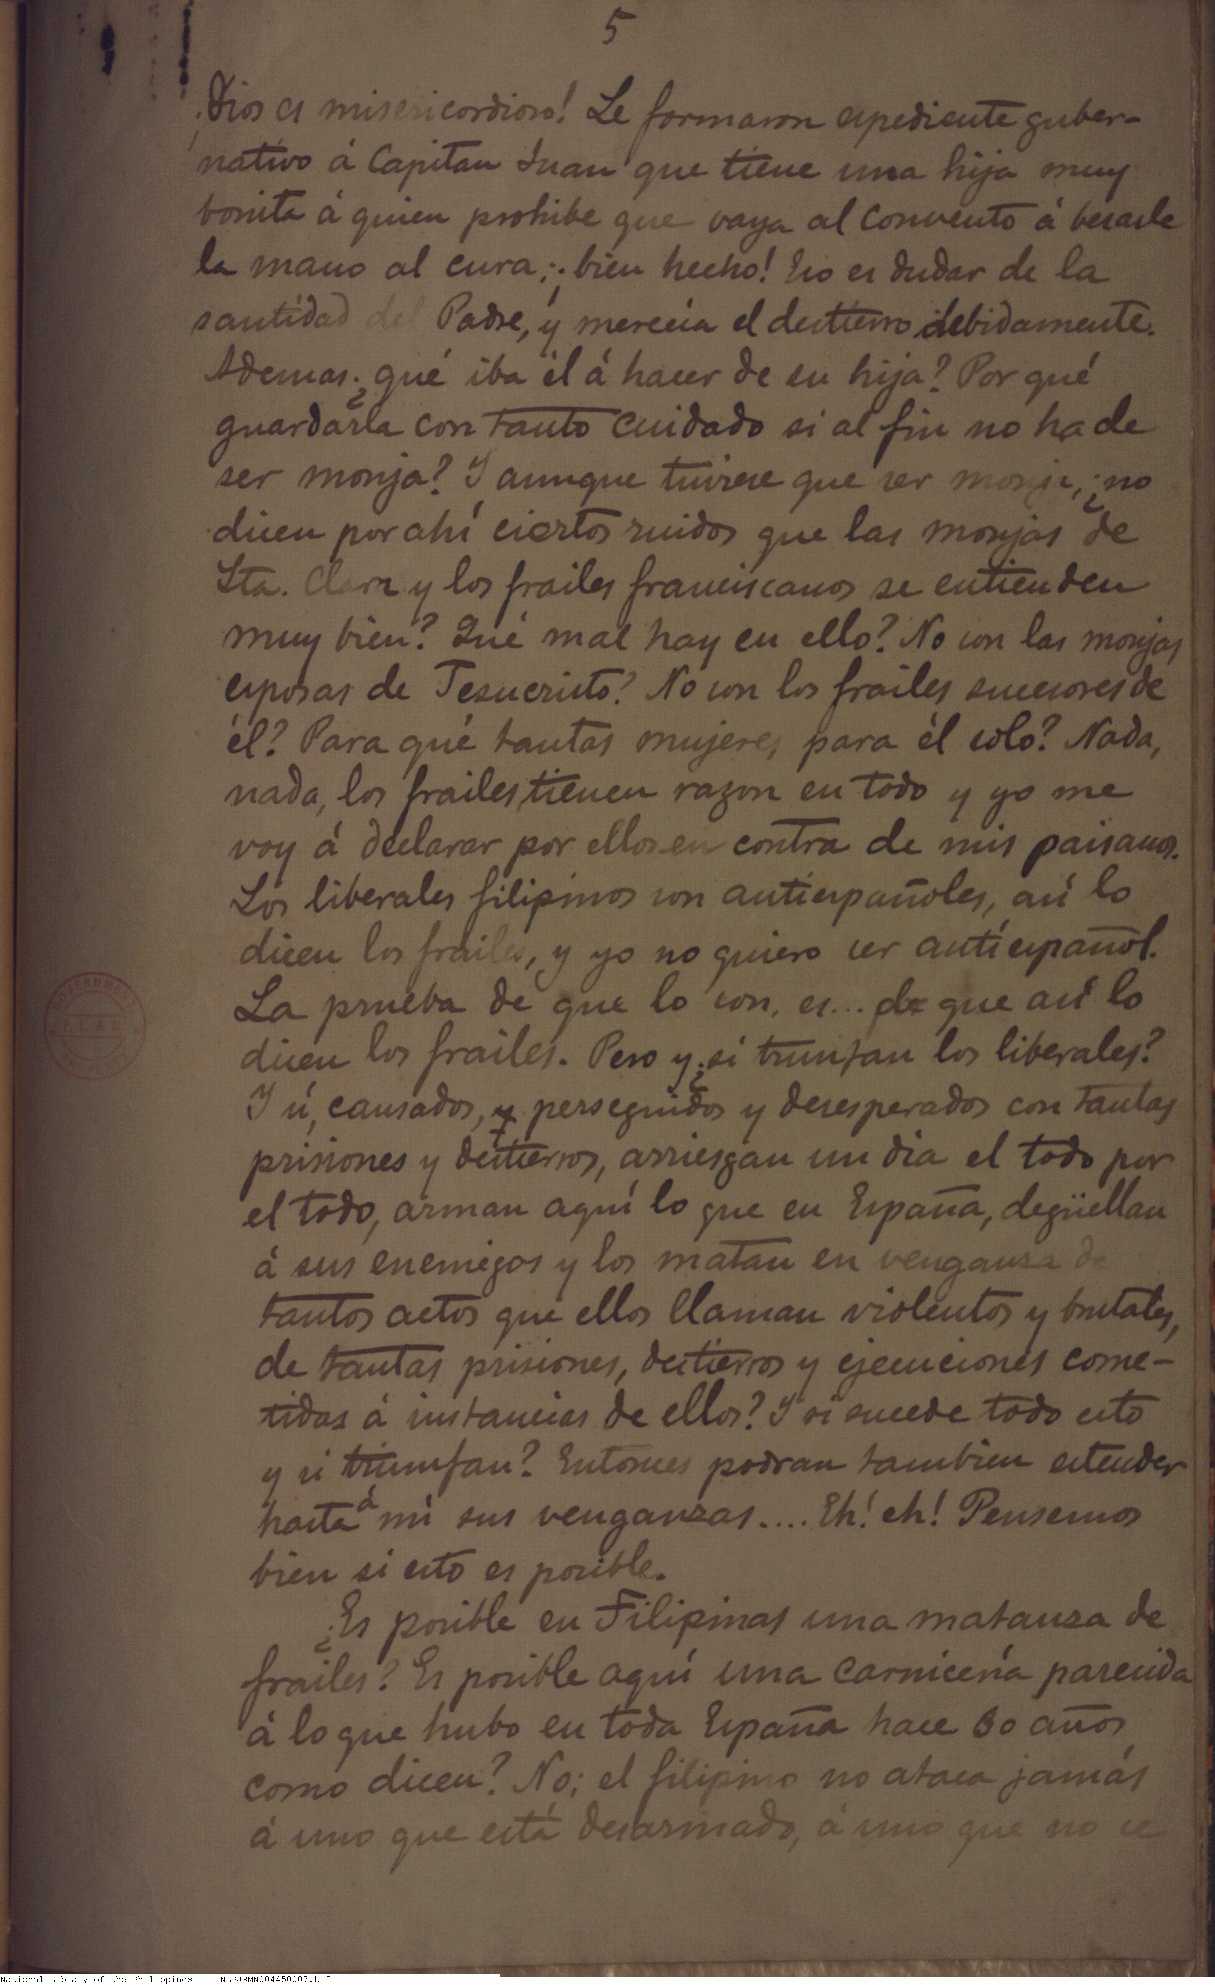 5
¡Dios es misericordioso! Le formaron espediente guber-
nativo á Capitan Juan que tiene una hija muy
bonita á quien prohibe que vaya al convento á besarle
la mano al cura; ¡bien hecho! Eso es dudar de la
santidad del Padre, y merecia el destierro debidamente.
Ademas ¿qué iba él á hacer de su hija? Por qué
guardarla con tanto cuidado si al fin no ha de
ser monja? Y aunque tuviese que ser monja, ¿no
dicen por ahí ciertos ruidos que las monjas de
Sta. Clara y los frailes franciscanos se entienden
muy bien? Qué mal hay en ello? No son las monjas
esposas de Jesucristo? No son los frailes sucesores de
él? Para qué tantas mujeres para él solo? Nada,
nada, los frailes tienen razon en todo y yo me
voy á declarar por ellos en contra de mis paisanos.
Los liberales filipinos son antiespañoles, así lo
dicen los frailes, y yo no quiero ser antiespañol.
La prueba de que lo son, es... de que así lo
dicen los frailes. Pero y ¿si triunfan los liberales?
Y si, cansados, y perseguidos y desesperados con tantas
prisiones y destierros, arriesgan un dia el todo por
el todo, arman aquí lo que en España, degüellan
á sus enemigos y los matan en venganza de
tantos actos que ellos llaman violentos y brutales,
de tantas prisiones, destierros y ejecuciones come-
tidas á instancias de ellos? Y si sucede todo esto
y si triunfan? Entonces podran tambien estender
hasta á mí sus venganzas.... Eh! eh! Pensemos
bien si esto es posible.
¿Es posible en Filipinas una matanza de
frailes? Es posible aquí una carnicería parecida
á lo que hubo en toda España hace 50 años
como dicen? No; el filipino no ataca jamás
á uno que está desarmado, á uno que no se
National Library of the Philippines